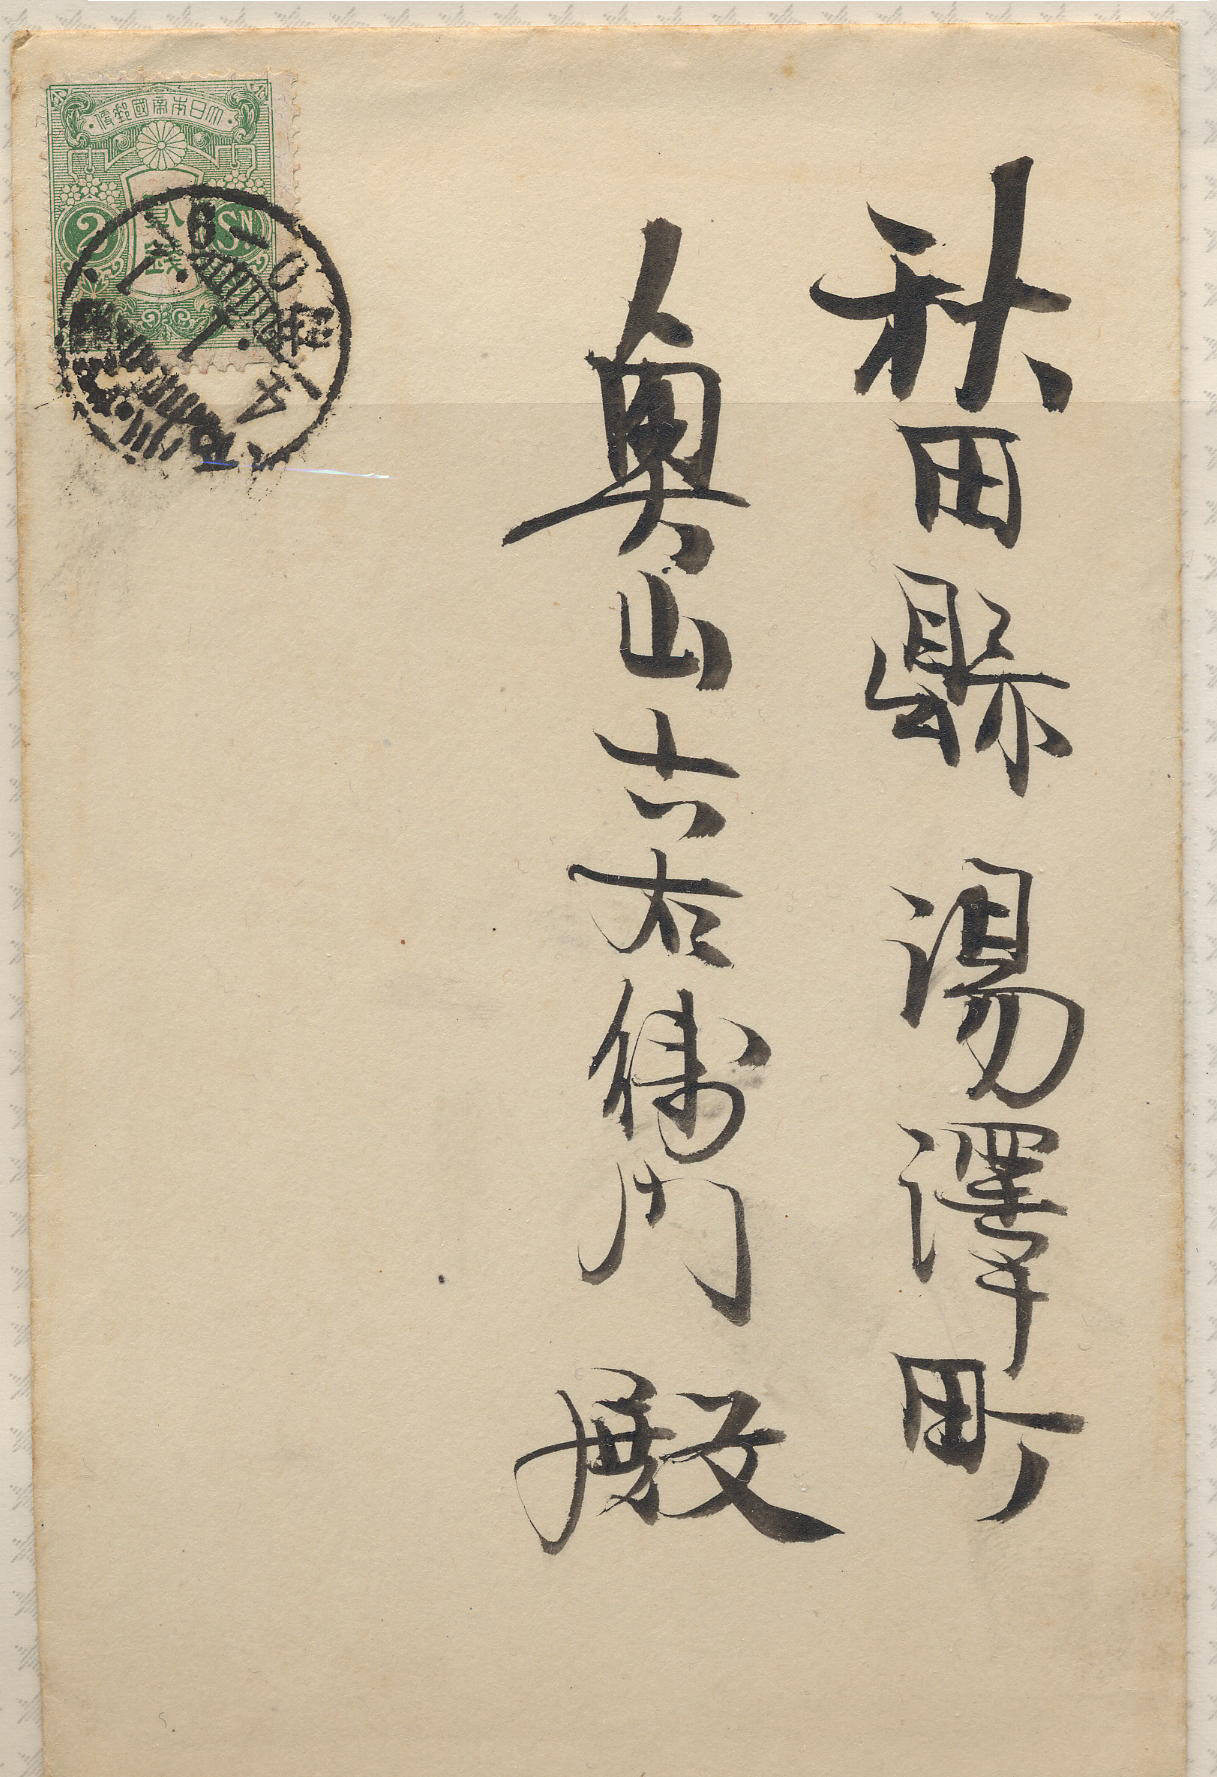 秋田縣 湯澤町
奥山六右衛門 殿
大日本帝國郵便
2
貳錢
SN